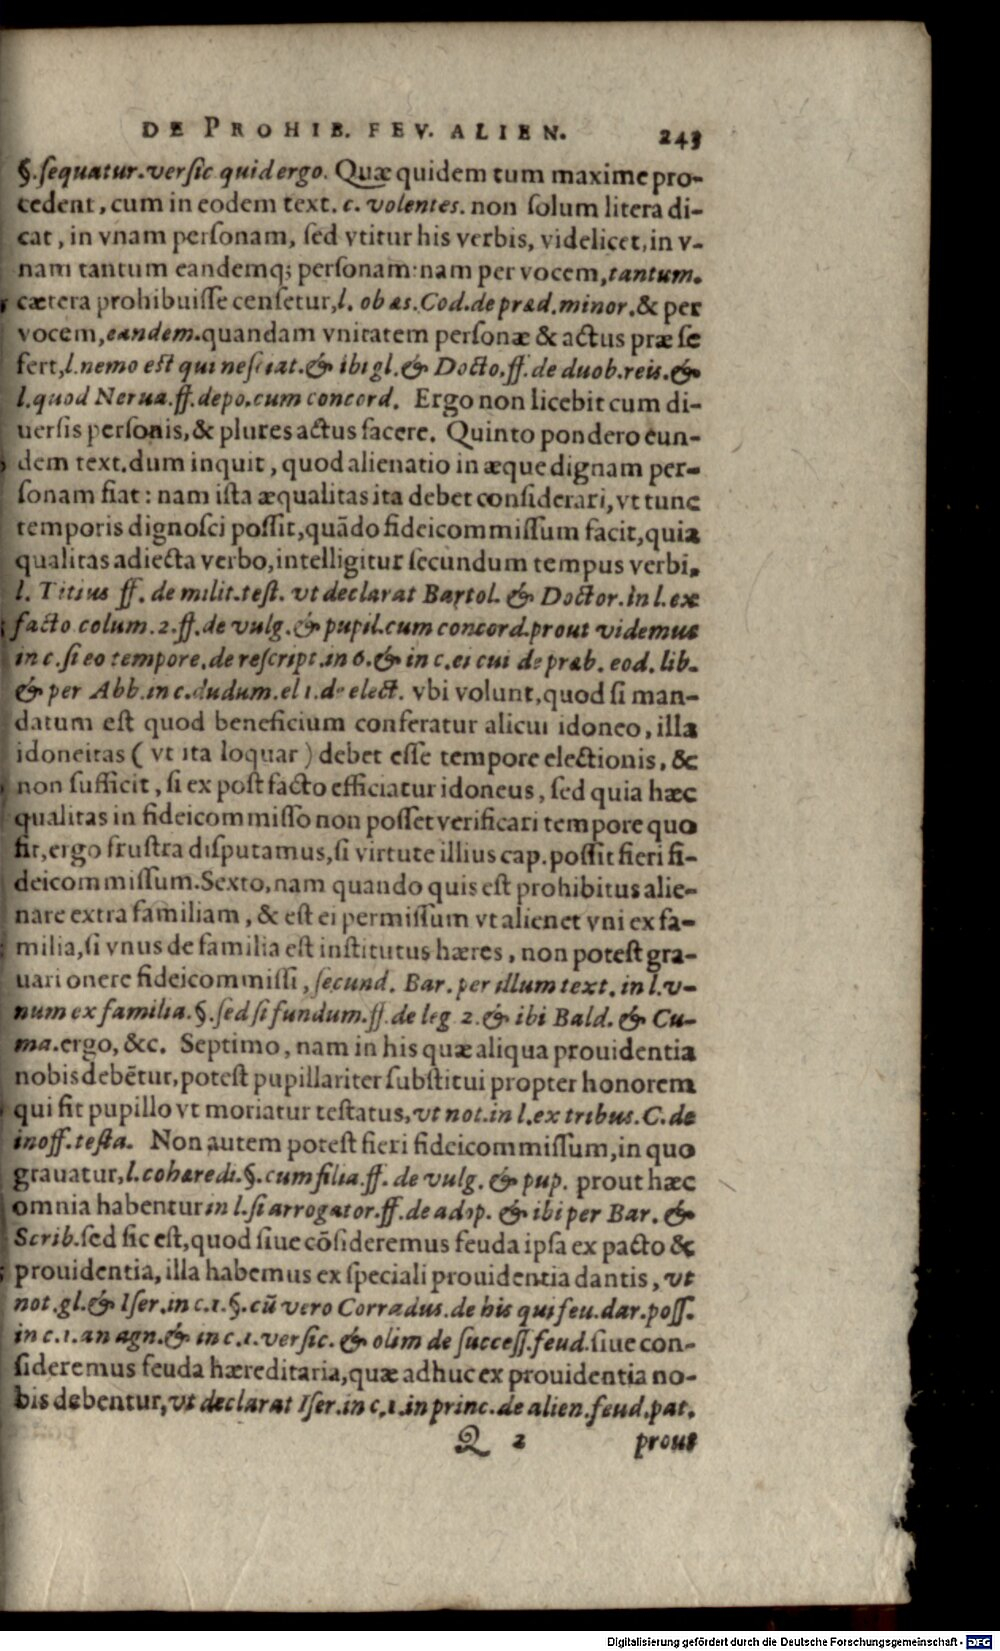 DE PROHIB. FEV. ALIEN. 243
§.sequatur.versic quid ergo. Quæ quidem tum maxime pro-
cedent, cum in eodem text. c. volentes. non solum litera di-
cat, in vnam personam, sed vtitur his verbis, videlicet, in v-
nam tantum eandemq; personam: nam per vocem, tantum.
cætera prohibuisse censetur, l. ob æs. Cod. de præd. minor. & per
vocem, eandem. quandam vnitatem personæ & actus præ se
fert, l. nemo est qui nesciat. & ibi gl. & Docto. ff. de duob. reis. &
l. quod Nerua. ff. depo. cum concord. Ergo non licebit cum di-
uersis personis, & plures actus facere. Quinto pondero eun-
dem text. dum inquit, quod alienatio in æque dignam per-
sonam fiat: nam ista æqualitas ita debet considerari, vt tunc
temporis dignosci possit, quãdo fideicommissum facit, quia
qualitas adiecta verbo, intelligitur secundum tempus verbi.
l. Titius ff. de milit. test. vt declarat Bartol. & Doctor. in l. ex
facto colum. 2. ff. de vulg. & pupil. cum concord. prout videmus
in c. si eo tempore. de rescript. in 6. & in c. ei cui de præb. eod. lib.
& per Abb. in c. dudum. el 1. de elect. vbi volunt, quod si man-
datum est quod beneficium conferatur alicui idoneo, illa
idoneitas ( vt ita loquar ) debet esse tempore electionis, &
non sufficit, si ex post facto efficiatur idoneus, sed quia hæc
qualitas in fideicommisso non posset verificari tempore quo
fit, ergo frustra disputamus, si virtute illius cap. possit fieri fi-
deicommissum. Sexto, nam quando quis est prohibitus alie-
nare extra familiam, & est ei permissum vt alienet vni ex fa-
milia, si vnus de familia est institutus hæres, non potest gra-
uari onere fideicommissi, secund. Bar. per illum text. in l. v-
num ex familia. §. sed si fundum. ff. de leg 2. & ibi Bald. & Cu-
ma. ergo, &c. Septimo, nam in his quæ aliqua prouidentia
nobis debẽtur, potest pupillariter substitui propter honorem
qui fit pupillo vt moriatur testatus, vt not. in l. ex tribus. C. de
inoff. testa. Non autem potest fieri fideicommissum, in quo
grauatur, l. cohæredi. §. cum filia. ff. de vulg. & pup. prout hæc
omnia habentur in l. si arrogator. ff. de adop. & ibi per Bar. &
Scrib. sed sic est, quod siue cõsideremus feuda ipsa ex pacto &
prouidentia, illa habemus ex speciali prouidentia dantis, vt
not. gl. & Iser. in c. 1. §. cũ vero Corradus. de his qui feu. dar. poss.
in c. 1. an agn. & in c. 1. versic. & olim de success. feud. siue con-
sideremus feuda hæreditaria, quæ adhuc ex prouidentia no-
bis debentur, vt declarat Iser. in c. 1. in princ. de alien. feud. pat.
Q 2 prout
Digitalisierung gefördert durch die Deutsche Forschungsgemeinschaft - DFG